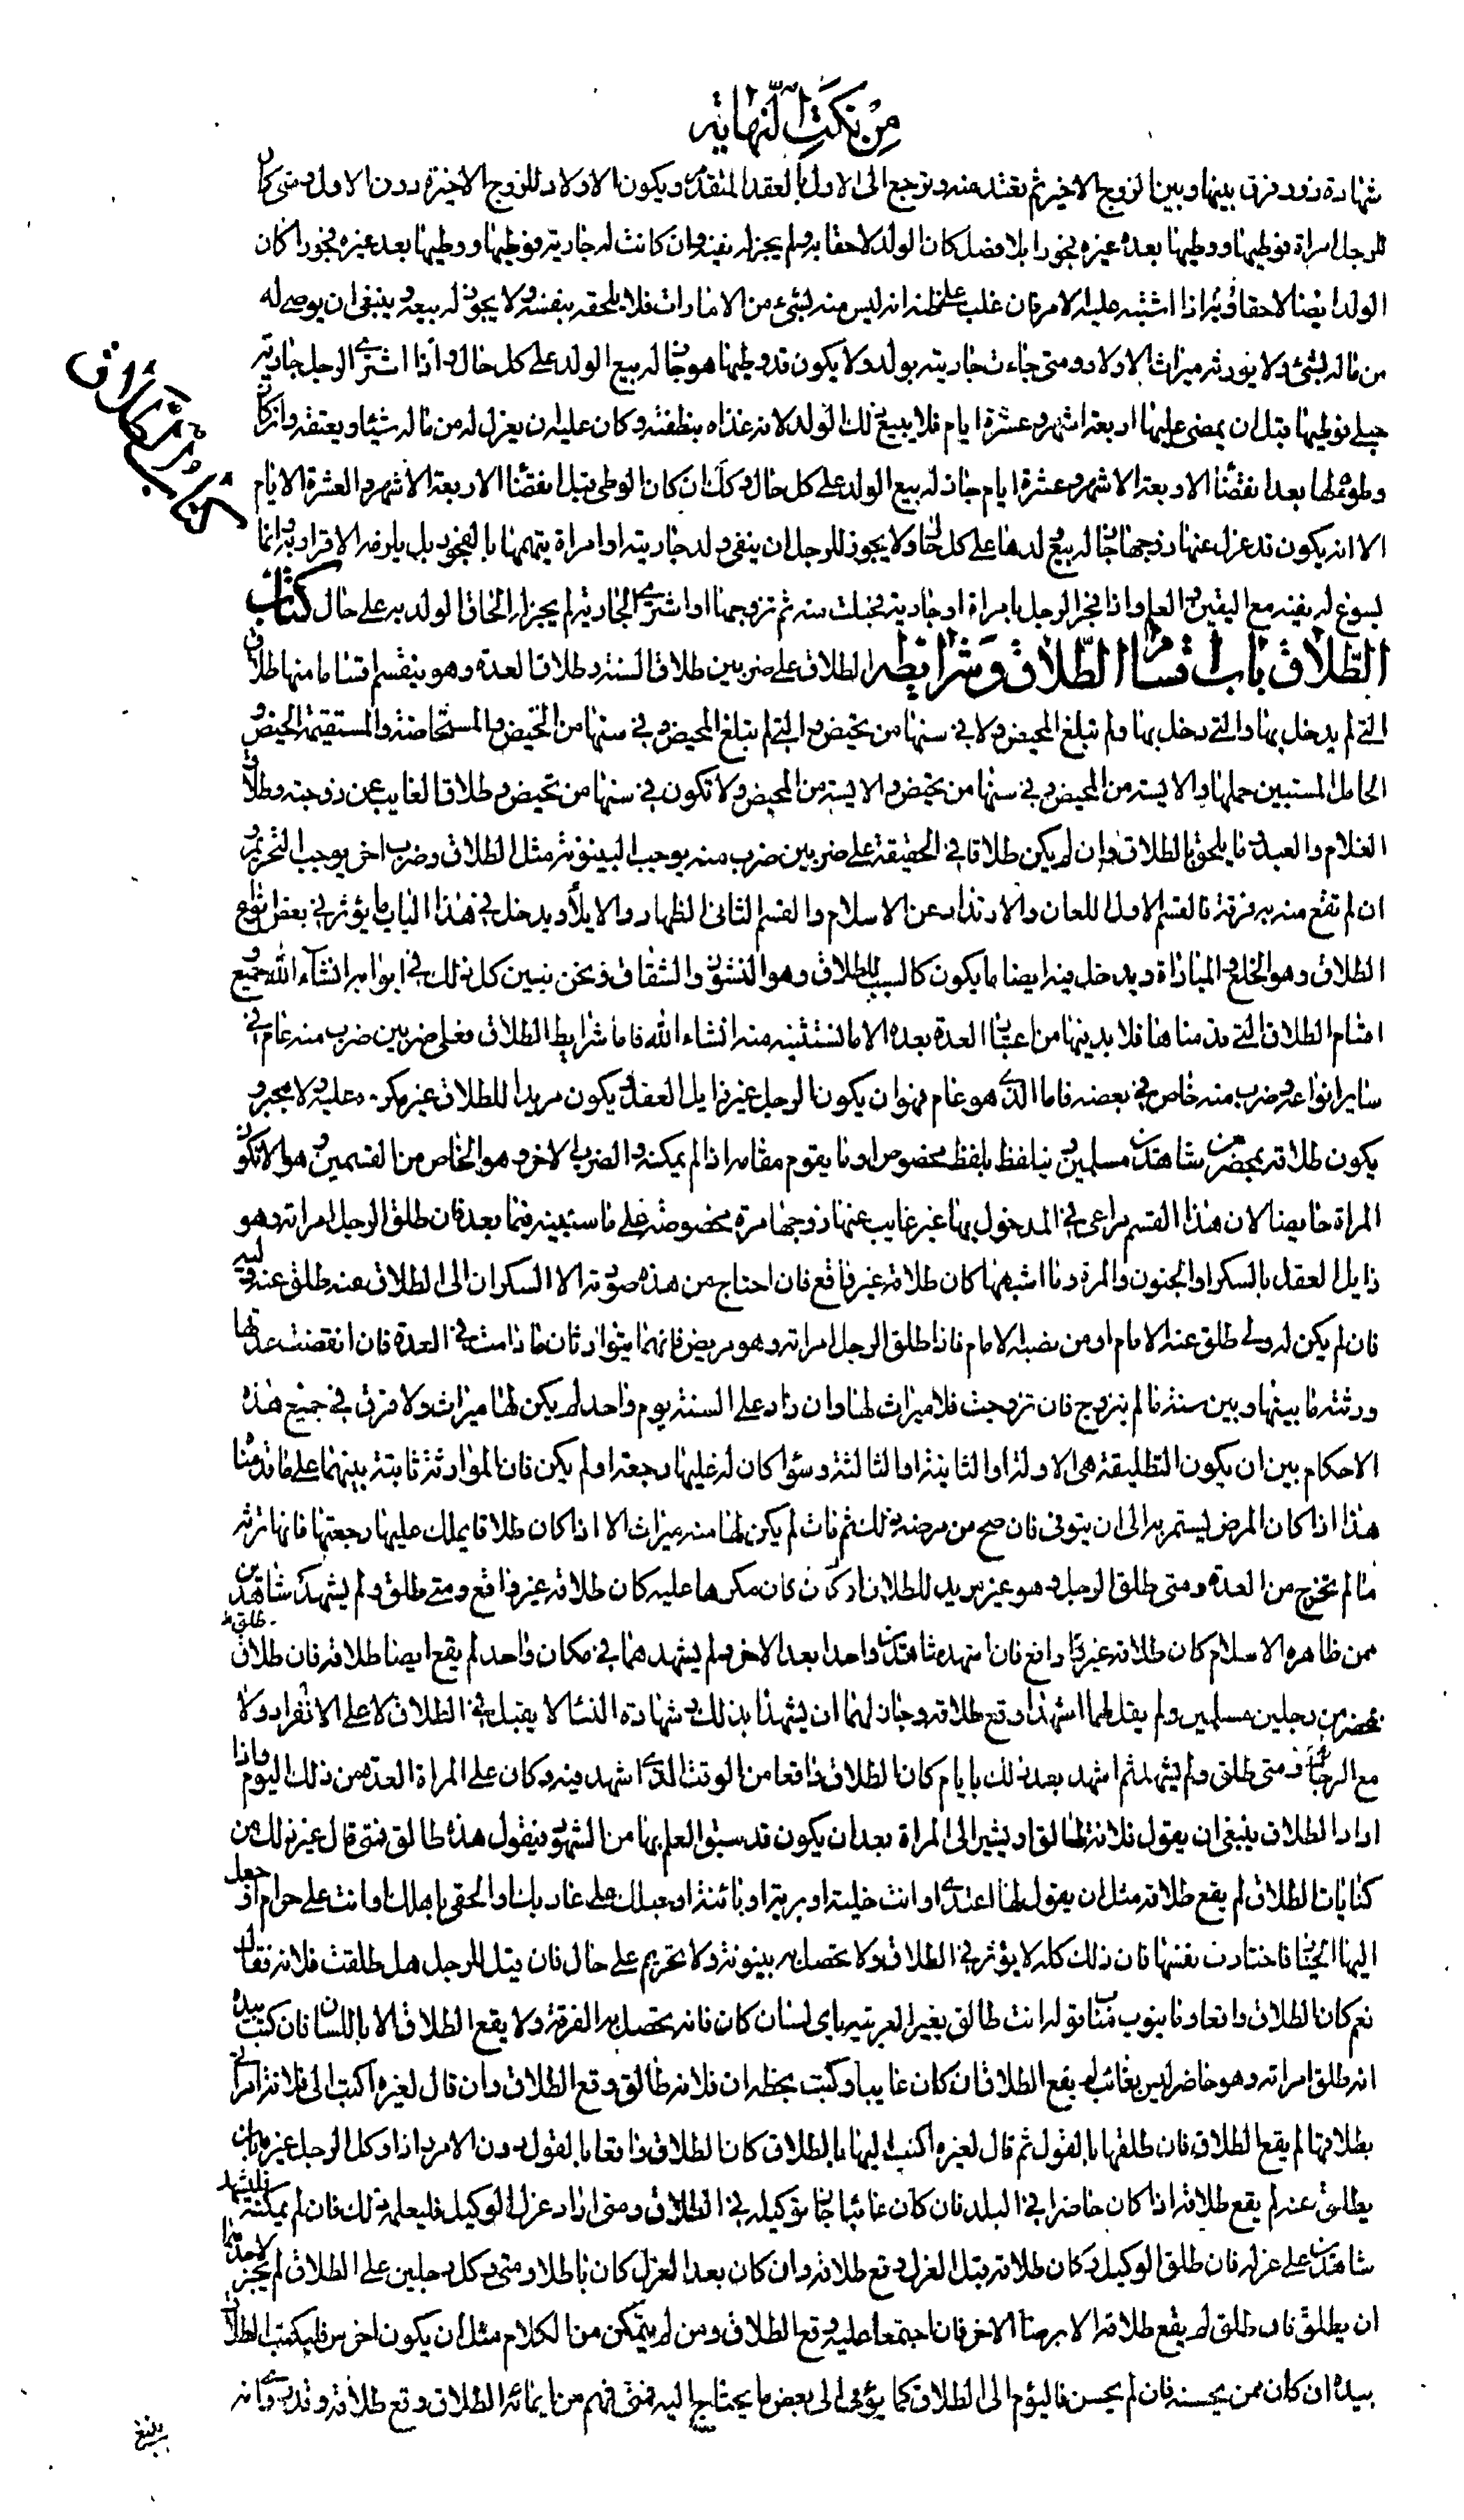 مِنْ نُكَتِ النّهاية
شهادة زور فرق بينها وبين الزوج الاخير ثم تعتد منه وترجع الى الاول بالعقد المتقدم ويكون الاولاد للزوج الاخيرة دون الاول ومتى كان
للرجل امراة فوطيها ووطيها بعده غيره فجورا بلا فصل كان الولد لاحقا به ولم يجز له نفيه وان كانت له جارية فوطيها ووطيها بعد غيره فجورا كان
الولد ايضا لاحقا به واذا اشتبه عليه الامر فان غلب على ظنه انه ليس منه لشيء من الامارات فلا يلحقه بنفسه ولا يجوز له بيعه وينبغى ان يوصى له
من ماله بشيء ولا يورثه ميراث الاولاد ومتى جاءت جاريته بولد ولا يكون قد وطيها هو جاز له بيع الولد على كل حال واذا اشترى الرجل جارية
حبلى فوطيها قبل ان يمضى عليها اربعة اشهر وعشرة ايام فلا يبيع ذلك الولد لانه غذاه بنطفته وكان عليه ان يعزل له من ماله شيئا ويعتقه وان كان
وطؤه لها بعد انقضاء الاربعة الاشهر وعشرة ايام جاز له بيع الولد على كل حال وكك ان كان الوطى قبل انقضاء الاربعة الاشهر والعشرة الايام
الا انه يكون قد عزل عنها زوجها جاز له بيع ولدها على كل حال ولا يجوز للرجل ان ينفى ولد جاريته او امراة يتهمها بالفجور بل يلزمه الاقرار به وانما
يسوغ له نفيه مع اليقين والعلم واذا فجر الرجل بامراة او جارية فحبلت منه ثم تزوجها او اشترى الجارية لم يجز له الحاق الولد به على حال كتاب
الطلاق باب اقسام الطلاق وشرايطه الطلاق على ضربين طلاق السنة وطلاق العدة وهو ينقسم اقساما منها طلاق
التي لم يدخل بها والتي دخل بها ولم تبلغ المحيض ولا في سنها من تحيض والتي لم تبلغ المحيض وفي سنها من تحيض والمستحاضة والمستقيمة الحيض و
الحامل المستبين حملها والايسة من المحيض وفي سنها من تحيض والايسة من المحيض ولا تكون في سنها من تحيض وطلاق الغايب عن زوجته وطلاق
الغلام والعبد وما يلحق بالطلاق وان لم يكن طلاقا في الحقيقة على ضربين ضرب منه يوجب البينونة مثل الطلاق وضرب اخر يوجب التحريم و
ان لم تقع منه به فرقة فالقسم الاول اللعان والارتداد عن الاسلام والقسم الثاني الظهار والايلاء ويدخل في هذا الباب ما يؤثر في بعض انواع
الطلاق وهو الخلع والمباراة ويدخل فيه ايضا ما يكون كالسبب للطلاق وهو النشوز والشقاق ونحن نبين كل ذلك في ابوابه انشآء الله وجميع
اقسام الطلاق التي قدمناها فلا بد فيها من اعتبار العدة بعده الا ما نستثنيه منه انشاء الله فاما شرايط الطلاق فعلى ضربين ضرب منه عام في
ساير انواعه وضرب منه خاص في بعضه فاما الذي هو عام فهو ان يكون الرجل غير زايل العقل ويكون مريدا للطلاق غير مكره عليه ولا مجبر و
يكون طلاقه بمحضر من شاهدين مسلمين ويتلفظ بلفظ مخصوص او ما يقوم مقامه اذا لم يمكنه والضرب الاخر وهو الخاص من القسمين وهو الا تكون
المراة حايضا لان هذا القسم مراعى في المدخول بها غير غايب عنها زوجها مدة مخصوصة على ما سنبينه فيما بعد فان طلق الرجل امراته وهو
زايل العقل بالسكر او الجنون والمرة وما اشبهها كان طلاقه غير واقع فان احتاج من هذه صورته الا السكران الى الطلاق عنه طلق عنه وليه
فان لم يكن له ولى طلق عنه الامام او من نصبه الامام فاذا طلق الرجل امراته وهو مريض فانهما يتوارثان ما دامت في العدة فان انقضت عدتها
ورثته ما بينها وبين سنة ما لم يتزوج فان تزوجت فلا ميراث لها وان زاد على السنة يوم واحد لم يكن لها ميراث ولا فرق في جميع هذه
الاحكام بين ان يكون التطليقة هى الاولة او الثانية او الثالثة وسؤا كان له عليها رجعة او لم يكن فان الموارثة ثابتة بينهما على ما قدمناه
هذا اذا كان المرض يستمر به الى ان يتوفى فان صح من مرضه ذلك ثم مات لم يكن لها منه ميراث الا اذا كان طلاقا يملك عليها رجعتها فانها ترثه
ما لم تخرج من العدة ومتى طلق الرجل وهو غير مريد للطلاق او كان مكرها عليه كان طلاقه غير واقع ومتى طلق ولم يشهد شاهدين
ممن ظاهره الاسلام كان طلاقه غير واقع فان اشهد شاهدين واحدا بعد الاخر ولم يشهدهما في مكان واحد لم يقع ايضا طلاقه فان طلق
بمحضر من رجلين مسلمين ولم يقل لهما اشهدا وقع طلاقه وجاز لهما ان يشهدا بذلك وشهادة النسا لا يقبل في الطلاق لا على الانفراد ولا
مع الرجال ومتى طلق ولم يشهد ثم اشهد بعد ذلك بايام كان الطلاق واقعا من الوقت الذي اشهد فيه وكان على المراة العدة من ذلك اليوم واذا
اراد الطلاق ينبغى ان يقول فلانة طالق او يشير الى المراة بعد ان يكون قد سبق العلم بها من الشهود فيقول هذه طالق فمتى قال غير ذلك من
كنايات الطلاق لم يقع طلاقه مثل ان يقول لها اعتدى او انت خلية او برية او بائنة او حبلك على غاربك او الحقى باهلك او انت على حرام او جعل
اليها الخيار فاختارت نفسها فان ذلك كله لا يؤثر في الطلاق ولا تحصل به بينونة ولا تحريم على حال فان قيل للرجل هل طلقت فلانة فقال
نعم كان الطلاق واقعا وما ينوب مناب قوله انت طالق بغير العربية باي لسان كان فانه تحصل به الفرقة ولا يقع الطلاق الا باللسان فان كتب بيده
انه طلق امراته وهو حاضر ليس بغائب لم يقع الطلاق وان كان غايبا وكتب بخطه ان فلانة طالق وقع الطلاق وان قال لغيره اكتب الى فلانة امراتي
بطلاقها لم يقع الطلاق فان طلقها بالقول ثم قال لغيره اكتب اليها بالطلاق كان الطلاق واقعا بالقول دون الامر واذا وكل الرجل غيره بان
يطلق عنه لم يقع طلاقه اذا كان حاضرا في البلد فان كان غائبا جاز توكيله في الطلاق ومتى اراد عزل الوكيل فليعلمه ذلك فان لم يمكنه فليشهد
شاهدين على عزله فان طلق الوكيل وكان طلاقه قبل العزل وقع طلاقه وان كان بعد العزل كان باطلا ومتى وكل رجلين على الطلاق لم يجز لاحدهما
ان يطلق فان طلق لم يقع طلاقه الا برضا الاخر فان اجتمعا عليه وقع الطلاق ومن لم يتمكن من الكلام مثل ان يكون اخرس فليكتب الطلاق
بيده ان كان ممن يحسنه فان لم يحسن فاليؤم الى الطلاق كما يؤمى الى بعض ما يحتاج اليه فمتى فهم من ايمائه الطلاق وقع طلاقه وقد روى انه
ينبغي
كتاب الطلاق